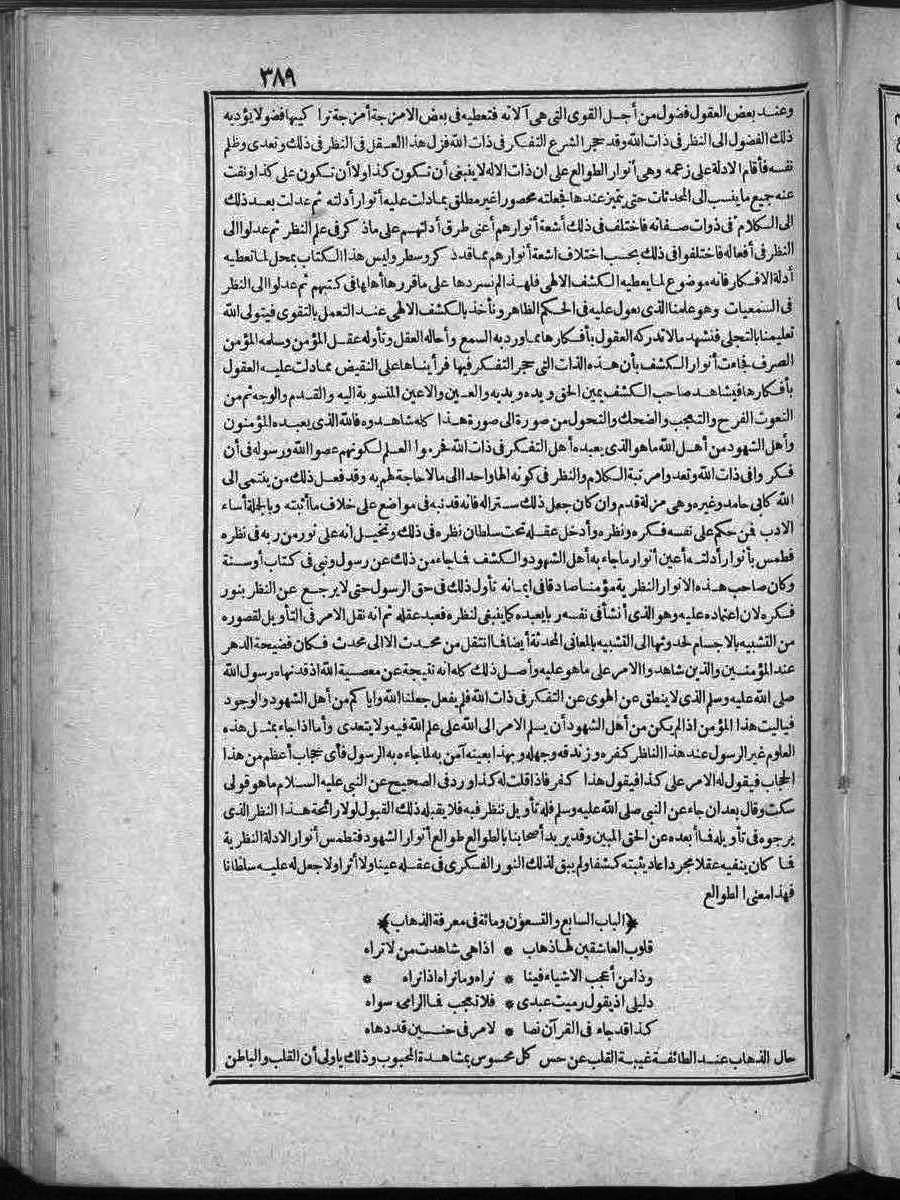 ٣٨٩
وعند بعض العقول فضول من أجل القوى التى هى آلاته فتعطيه فى بعض الامزجة أمزجة تراكيبها فضولا يؤديه
ذلك الفضول الى النظر فى ذات الله وقد حجر الشرع التفكر فى ذات الله فزل هذا العقل فى النظر فى ذلك وتعدى وظلم
نفسه فأقام الادلة على زعمه وهى أنوار الطوالع على ان ذات الاله لا ينبغى أن تكون كذا ولا أن تكون على كذا ونفت
عنه جميع ما ينسب الى المحدثات حتى يتميز عندها فجعلته محصورا غير مطلق بما دلت عليه أنوار أدلته ثم عدلت بعد ذلك
الى الكلام فى ذوات صفاته فاختلف فى ذلك أشعة أنوارهم أعنى طرق أدلتهم على ماذكر فى علم النظر ثم عدلوا الى
النظر فى أفعاله فاختلفوا فى ذلك بحسب اختلاف أشعة أنوارهم مما قد ذكر وسطر وليس هذا الكتاب بمحل لما تعطيه
أدلة الافكار فانه موضوع لما يعطيه الكشف الالهى فلهذا لم نسردها على ما قررها أهلها فى كتبهم ثم عدلوا الى النظر
فى السمعيات وهو علمنا الذى يعول عليه فى الحكم الظاهر ونأخذ بالكشف الالهى عند التعمل بالتقوى فيتولى الله
تعليمنا بالتجلى فنشهد مالا تدركه العقول بأفكارها مما ورد به السمع وأحاله العقل وتأوله عقل المؤمن وسلمه المؤمن
الصرف فجاءت أنوار الكشف بأن هذه الذات التى حجر التفكر فيها فرأيناها على النقيض مما دلت عليه العقول
بأفكارها فيشاهد صاحب الكشف يمين الحق ويده ويديه والعين والاعين المنسوبة اليه والقدم والوجه ثم من
النعوت الفرح والتعجب والضحك والتحول من صورة الى صورة هذا كله شاهدوه فالله الذى يعبده المؤمنون
وأهل الشهود من أهل الله ما هو الذى يعبده أهل التفكر فى ذات الله فحرموا العلم لكونهم عصوا الله ورسوله فى أن
فكروا فى ذات الله وتعدوا مرتبة الكلام والنظر فى كونه الها واحدا الى مالا حاجة لهم به وقد فعل ذلك من ينتمى الى
الله كابى حامد وغيره وهى مزلة قدم وان كان جعل ذلك سترا له فانه قد نبه فى مواضع على خلاف ما أثبته وبالجلة أساء
الادب فمن حكم على نفسه فكره ونظره وأدخل عقله تحت سلطان نظره فى ذلك وتخيل انه على نور من ربه فى نظره
فطمس بأنوار أدلته أعين أنوار ما جاء به أهل الشهود والكشف فما جاء من ذلك عن رسول ونبى فى كتاب أو سنة
وكان صاحب هذه الانوار النظرية مؤمنا صادقا فى ايمانه تأول ذلك فى حق الرسول حتى لا يرجع عن النظر بنور
فكره لان اعتماده عليه وهو الذى أنشأ فى نفسه ربا يعبده كما ينبغى لنظره فعبد عقله ثم انه نقل الامر فى التأويل لقصوره
من التشبيه بالاجسام لحدوثها الى التشبيه بالمعانى المحدثة أيضا فما انتقل من محدث الا الى محدث فكان فضيحة الدهر
عند المؤمنين والذين شاهدوا الامر على ما هو عليه وأصل ذلك كله انه نتيجة عن معصية الله اذ قد نهاه رسول الله
صلى الله عليه وسلم الذى لا ينطق عن الهوى عن التفكر فى ذات الله فلم يفعل جعلنا الله واياكم من أهل الشهود والوجود
فياليت هذا المؤمن اذا لم يكن من أهل الشهود أن يسلم الامر الى الله على علم الله فيه ولا يتعدى وأما اذا جاء بمثل هذه
العلوم غير الرسول عند هذا الناظر كفره وزندقه وجهله وبهذا بعينه آمن به لما جاءه به الرسول فأى حجاب أعظم من هذا
الحجاب فيقول له الامر على كذا فيقول هذا كفر فاذا قلت له كذا ورد فى الصحيح عن النبى عليه السلام ما هو قولى
سكت وقال بعد ان جاء عن النبى صلى الله عليه وسلم فله تأويل ننظر فيه فلا يقبله ذلك القبول لولا رائحة هذا النظر الذى
يرجوه فى تأويله فما أبعده عن الحق المبين وقد يريد أصحابنا بالطوالع طوالع أنوار الشهود فتطمس أنوار الادلة النظرية
فما كان ينفيه عقلا مجردا عاد يثبته كشفا ولم يبق لذلك النور الفكرى فى عقله عينا ولا أثرا ولا جعل له عليه سلطانا
فهذا معنى الطوالع
﴿الباب السابع والتسعون ومائة فى معرفة الذهاب﴾
قلوب العاشقين لها ذهاب * اذا هى شاهدت من لا تراه
وذا من أعجب الاشياء فينا * نراه وما نراه اذا نراه *
دليلى اذ يقول رميت عبدى * فلا تعجب فما الرامى سواه
كذا قد جاء فى القرآن نصا * لامر فى حنين قد دهاه
حال الذهاب عند الطائفة غيبة القلب عن حس كل محسوس بمشاهدة المحبوب وذلك ياولى أن القلب والباطن